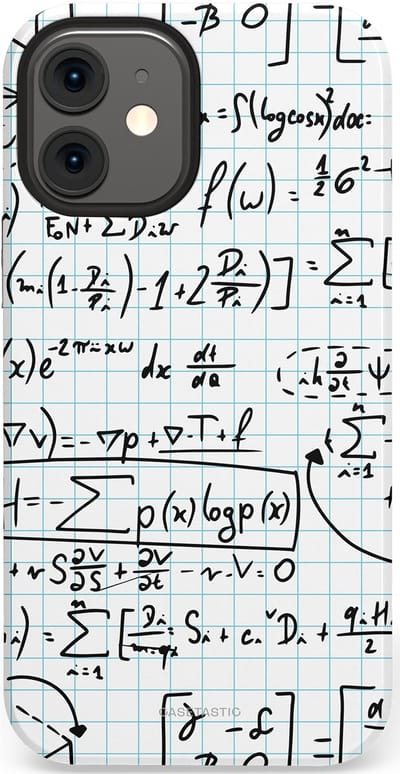 -B 0
= ∫(log cosx)² dx =
f(w) = 1/2 6² -
E₀N + ΣDᵢw
(mᵢ(1 - Dᵢ/Pᵢ) - 1 + 2 Dᵢ/Pᵢ)] = Σⁿᵢ₌₁ [
(x)e^(-2πixw) dx dt/dQ
iħ ∂/∂t Ψ
∇v) = -∇p + ∇·T + f
Σⁿᵢ₌₁
H = -Σ p(x) log p(x)
+ rS ∂V/∂S + ∂V/∂t - r·V = 0
) = Σⁿᵢ₌₁ [Dᵢ Sᵢ + cᵢ Dᵢ + qᵢH /2
CASETASTIC